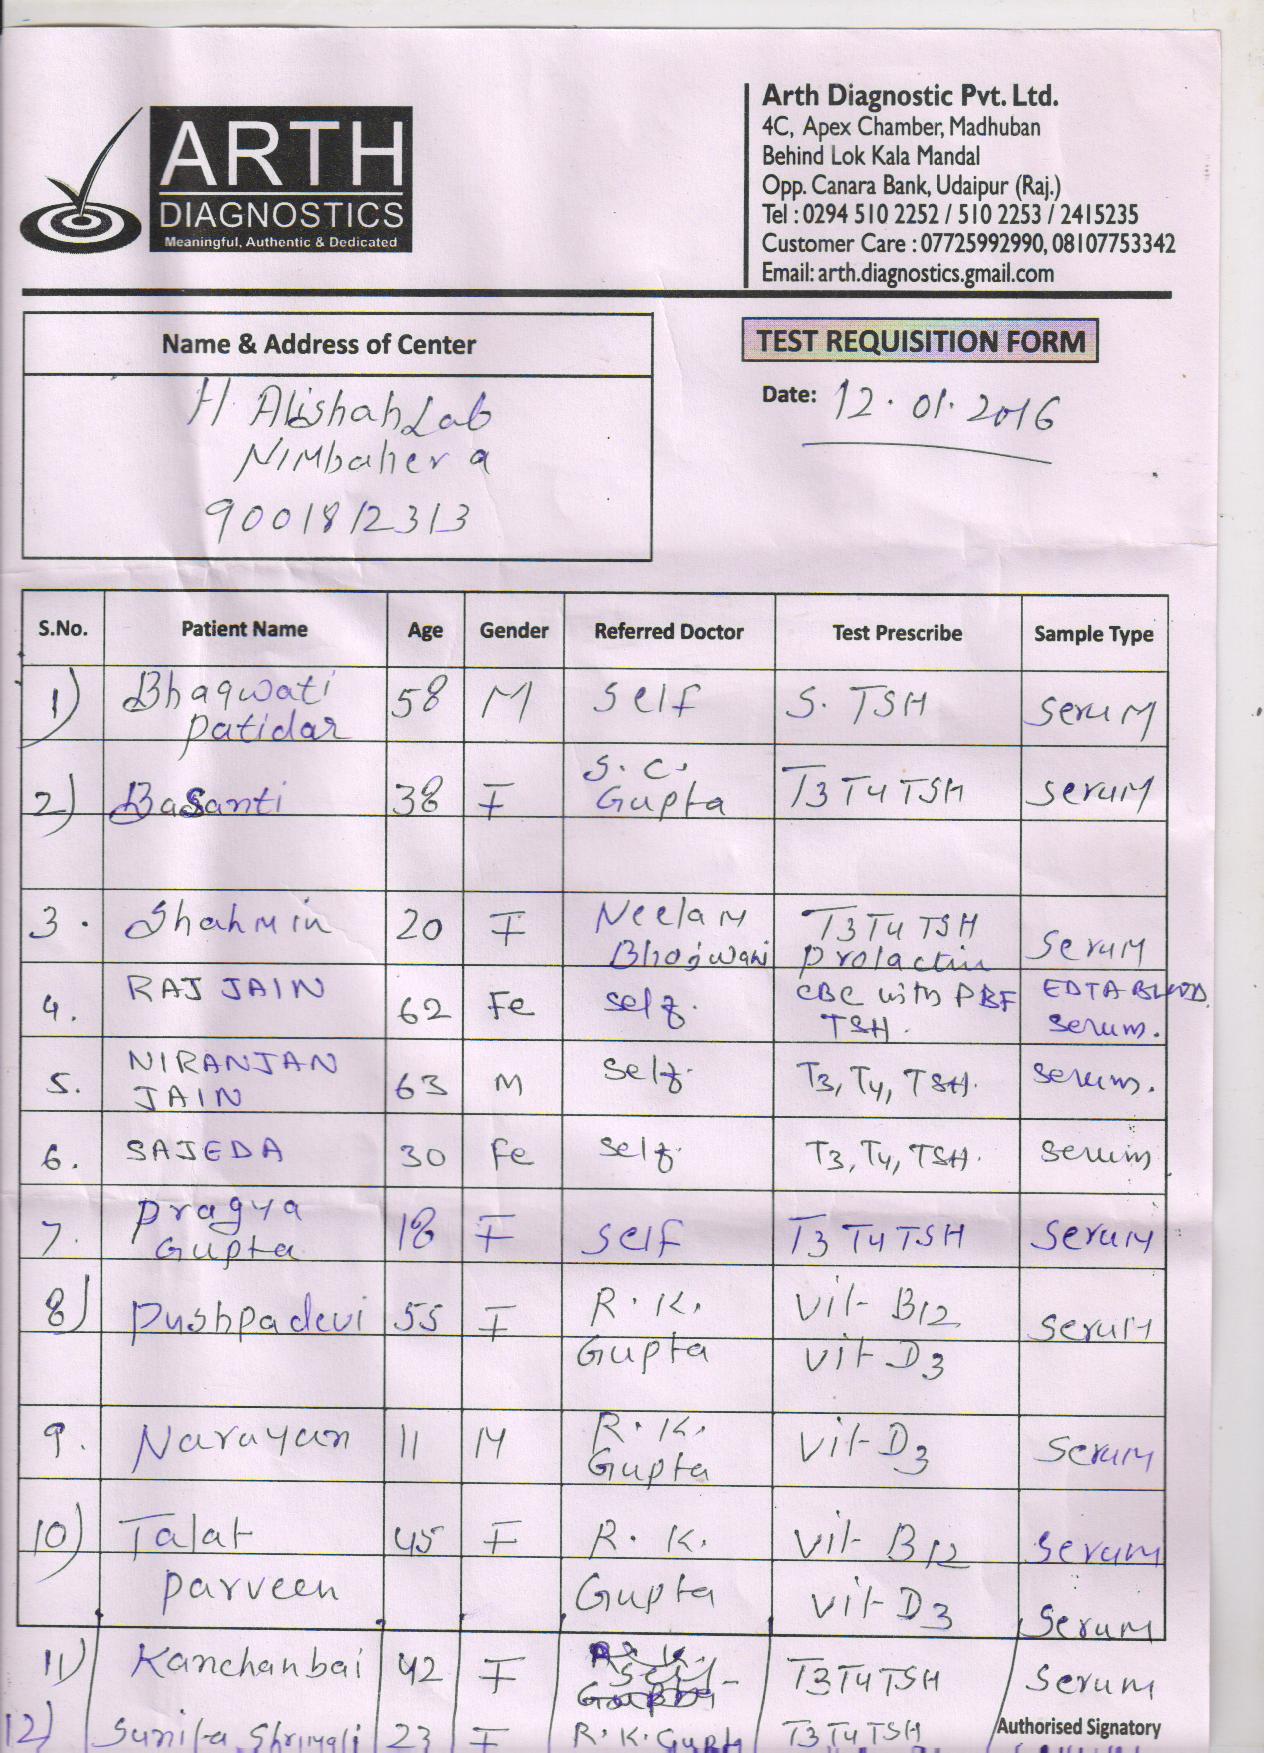 ARTH
DIAGNOSTICS
Meaningful, Authentic & Dedicated
Arth Diagnostic Pvt. Ltd.
4C, Apex Chamber, Madhuban
Behind Lok Kala Mandal
Opp. Canara Bank, Udaipur (Raj.)
Tel : 0294 510 2252 / 510 2253 / 2415235
Customer Care : 07725992990, 08107753342
Email: arth.diagnostics.gmail.com
Name & Address of Center
TEST REQUISITION FORM
H. Alishah Lab
Nimbahera
9001812313
Date: 12.01.2016
S.No. Patient Name Age Gender Referred Doctor Test Prescribe Sample Type
1) Bhagwati Patidar 58 M Self S. TSH Serum
2) Basanti 38 F S. C. Gupta T3 T4 TSH Serum
3. Shahmin 20 F Neelam Bhojwani T3 T4 TSH Prolactin Serum
4. RAJ JAIN 62 Fe self. CBC with PBF TSH. EDTA BLOOD. Serum.
5. NIRANJAN JAIN 63 M Self. T3, T4, TSH. Serum.
6. SAJEDA 30 Fe Self. T3, T4, TSH. Serum
7. Pragya Gupta 18 F Self T3 T4 TSH Serum
8) Pushpadevi 55 F R. K. Gupta Vit- B12 Vit D3 Serum
9. Narayan 11 M R. K. Gupta Vit- D3 Serum
10) Talat Parveen 45 F R. K. Gupta Vit- B12 Vit- D3 Serum Serum
11) Kanchanbai 42 F Self T3 T4 TSH Serum
12) Sunita Shrimali 23 F R. K. Gupta T3 T4 TSH
Authorised Signatory